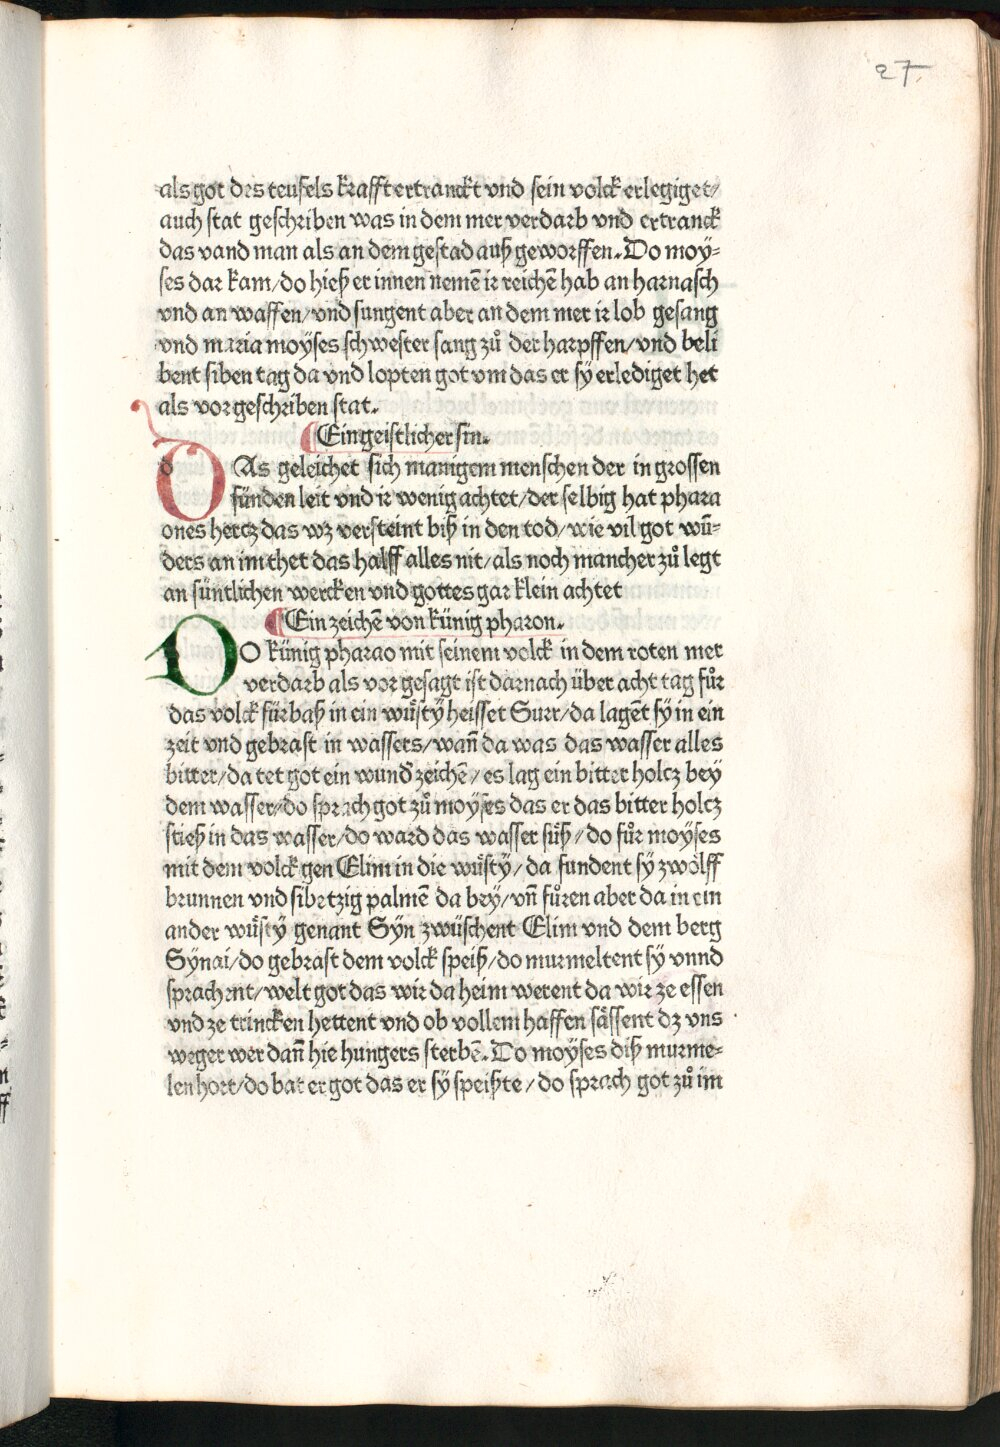 27
als got des teufels krafft ertranckt vnd sein volck erlegiget/
auch stat geschriben was in dem mer verdarb vnd ertranck
das vand man als an dem gestad auß geworffen. Do moÿ-
ses dar kam/do hieß er innen nemē ir reichē hab an harnasch
vnd an waffen/vnd sungent aber an dem mer ir lob gesang
vnd maria moÿses schwester sang zů der harpffen/vnd beli
bent siben tag da vnd lopten got vm das er sÿ erlediget het
als vor geschriben stat.
¶ Ein geistlicher sin.
d As geleichet sich manigem menschen der in grossen
sünden leit vnd ir wenig achtet/der selbig hat phara
ones hertz das wz versteint biß in den tod/wie vil got wū-
ders an im thet das halff alles nit/als noch mancher zů legt
an süntlichen wercken vnd gottes gar klein achtet
¶ Ein zeichē von künig pharon.
DO künig pharao mit seinem volck in dem roten mer
verdarb als vor gesagt ist darnach über acht tag fůr
das volck fürbaß in ein wůstÿ heisset Surr/da lagēt sÿ in ein
zeit vnd gebrast in wassers/wañ da was das wasser alles
bitter/da tet got ein wund̄ zeichē/es lag ein bitter holcz beÿ
dem wasser/do sprach got zů moÿses das er das bitter holcz
stieß in das wasser/do ward das wasser sůß/do fůr moÿses
mit dem volck gen Elim in die wůstÿ/da fundent sÿ zwölff
brunnen vnd sibetzig palmē da bey/vñ fůren aber da in ein
ander wůstÿ genant Sÿn zwüschent Elim vnd dem berg
Sÿnai/do gebrast dem volck speiß/do murmeltent sÿ vnnd
sprachent/welt got das wir da heim werent da wir ze essen
vnd ze trincken hettent vnd ob vollem haffen sässent dz vns
weger wer dañ hie hungers sterbē. Do moÿses diß murme-
len hort/do bat er got das er sÿ speißte/do sprach got zů im